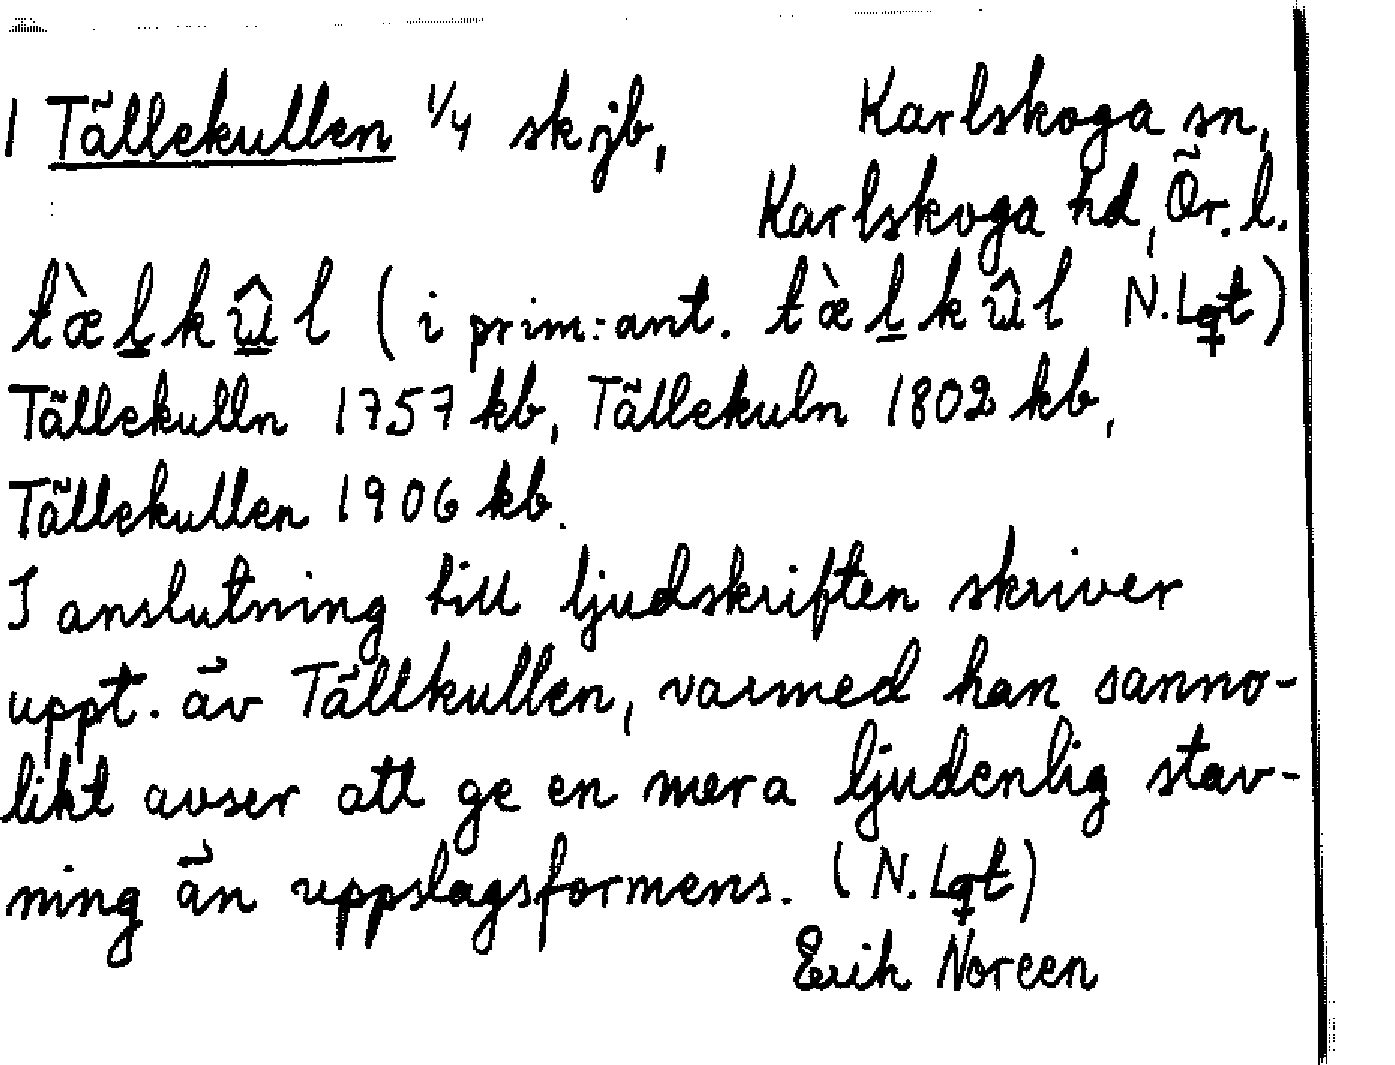 1 Tällekullen 1/4 skjb, Karlskoga sn,
Karlskoga hd, Ör. l.
tæ̀l̲kɯ̲̂l (i prim:ant. tæ̀l̲kɯ̂l N.Lqt)
Tällekulln 1757 kb, Tällekuln 1802 kb,
Tällekullen 1906 kb.
I anslutning till ljudskriften skriver
uppt. äv Tällkullen, varmed han sanno-
likt avser att ge en mera ljudenlig stav-
ning än uppslagsformens. (N.Lqt)
Erik Noreen